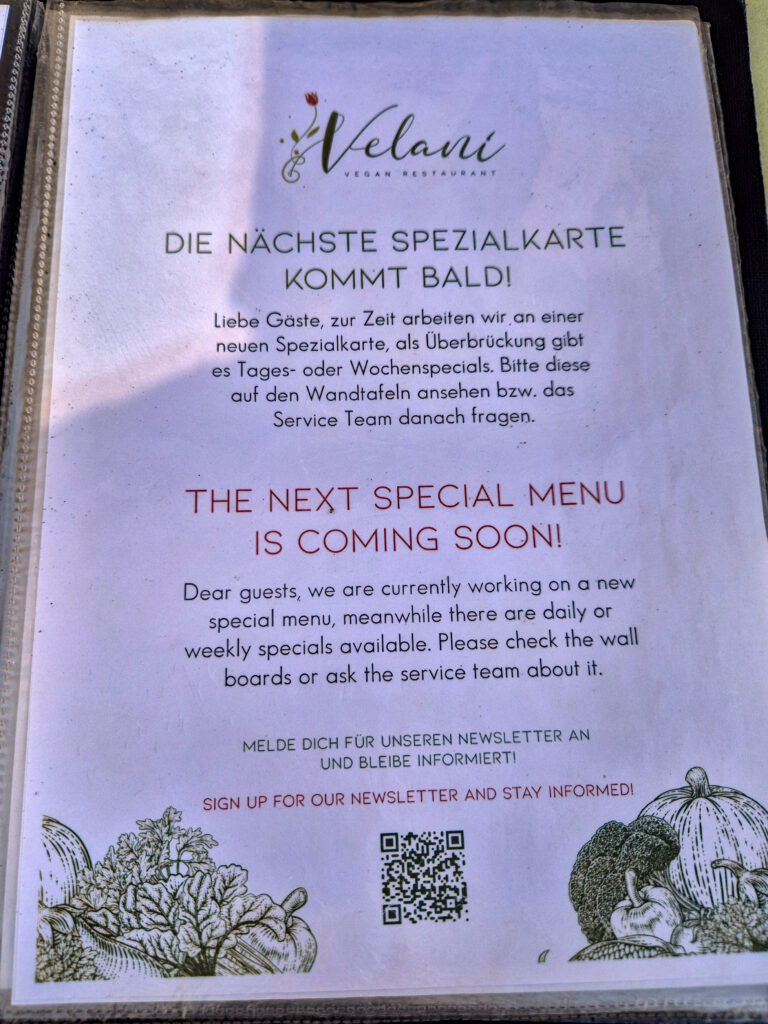 Velani
VEGAN RESTAURANT
DIE NÄCHSTE SPEZIALKARTE
KOMMT BALD!
Liebe Gäste, zur Zeit arbeiten wir an einer
neuen Spezialkarte, als Überbrückung gibt
es Tages- oder Wochenspecials. Bitte diese
auf den Wandtafeln ansehen bzw. das
Service Team danach fragen.
THE NEXT SPECIAL MENU
IS COMING SOON!
Dear guests, we are currently working on a new
special menu, meanwhile there are daily or
weekly specials available. Please check the wall
boards or ask the service team about it.
MELDE DICH FÜR UNSEREN NEWSLETTER AN
UND BLEIBE INFORMIERT!
SIGN UP FOR OUR NEWSLETTER AND STAY INFORMED!